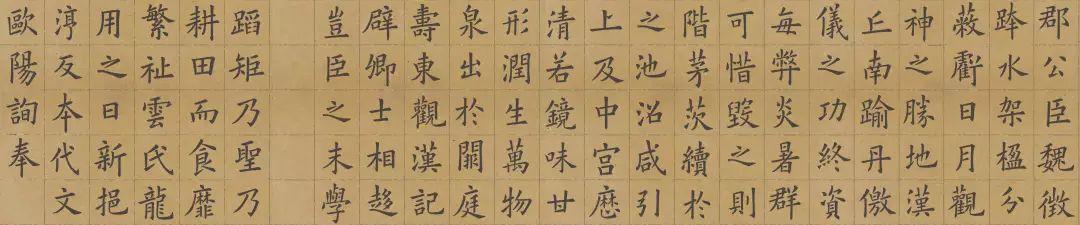 郡公臣魏徵
跨水架楹分
蔽虧日月觀
神之勝地漢
丘南踰丹徼
儀之功終資
每弊炎暑群
可惜毀之則
階茅茨續於
之池沼咸引
上及中宮歷
清若鏡味甘
形潤生萬物
泉出於闕庭
壽東觀漢記
辟卿士相趍
豈臣之末學
蹈矩乃聖乃
耕田而食靡
繁祉雲氏龍
用之日新挹
淳反本代文
歐陽詢奉